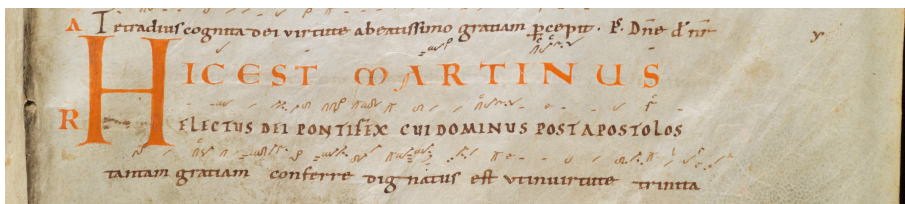 A Tetradius cognita dei virtute a beatissimo gratiam p̱cepit. P. Dn̄e d̄ nr̄ y
HIC EST MARTINUS
R ELECTUS DEI PONTIFEX CUI DOMINUS POST APOSTOLOS
tantam gratiam conferre dignatus est ut in virtute trinita